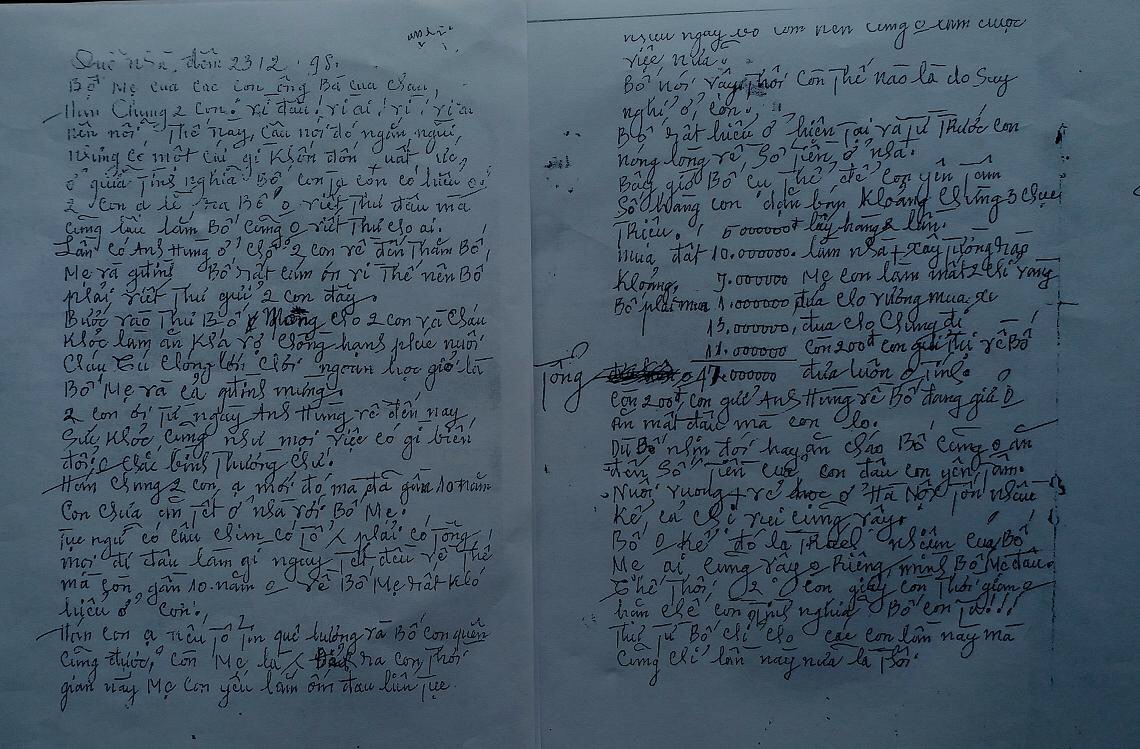 Quê nhà, đêm 23 12. 98.
Bố Mẹ của các con, ông Bà của cháu,
Hân Chung 2 con! vì đâu, vì ai, vì, vì ai
nên nỗi thế này, câu nói đó ngắn ngủi,
nhưng có một cái gì khốn đốn uất ức,
ở giữa tình nghĩa Bố con ta còn có hiểu o.
2 con ạ lẽ ra Bố o viết thư đâu mà
cũng lâu lắm Bố cũng o viết thư cho ai.
Lần có Anh Hùng ở chỗ 2 con về đến thăm Bố,
Mẹ và gđình Bố rất cảm ơn vì thế nên Bố
phải viết thư gửi 2 con đấy.
Bước vào thư Bố mong cho 2 con và cháu
khoẻ làm ăn khá vợ chồng hạnh phúc nuôi
cháu Tú chóng lớn chơi ngoan học giỏi là
Bố Mẹ và cả gđình mừng.
2 con ơi từ ngày Anh Hùng về đến nay
sức khoẻ cũng như mọi việc có gì biến
đổi o chắc bình thường chứ.
Hân Chung 2 con ạ mới đó mà đã gần 10 năm
con chưa ăn tết ở nhà với Bố Mẹ.
Tục ngữ có câu chim có tổ phải có tông
mọi đi đâu làm gì ngày tết đều về thế
mà gần 10 năm o về Bố Mẹ rất khó
hiểu ở con.
Hân con ạ nếu tổ tiên quê hương và Bố con quên
cũng được, còn Mẹ là đẻ ra con thời
gian này Mẹ con yếu lắm ốm đau liên tục
nhiều ngày bỏ cơm nên cũng o làm được
việc nữa.
Bố nói vậy thôi còn thế nào là do suy
nghĩ ở con.
Bố rất hiểu ở hiện tại và từ trước con
nóng lòng về số tiền ở nhà.
Bây giờ Bố cụ thể để con yên tâm
Số hàng con bán khoảng chừng 3 chục
triệu. 5000000đ lấy hàng lần.
mua đất 10.000000. làm nhà + xây tường
khoảng. 7.000000 Mẹ con làm mất 2 chỉ vàng
Bố phải mua 1.000000, đưa cho vương mua xe
13.000000, đưa cho Chung đi
11.000000 còn 200đ con gửi Tú về Bố
Tổng 47.000000 đưa luôn o tính.
Còn 200đ con gửi Anh Hùng về Bố đang giữ o
ăn mất đâu mà con lo.
Dù Bố nhịn đói hay ăn cháo Bố cũng o ăn
đến số tiền của con đâu con yên tâm.
Nuôi vương + vẽ học ở Hà Nội tốn nhiều
kể cả chỉ vui cũng vậy.
Bố o kể đó là trách nhiệm của Bố
Mẹ ai cũng vậy o riêng mình Bố Mẹ đâu.
Thế thôi, 2 con giây còn thời gian o
hạn chế con tình nghĩa Bố con ta!!!
Thư từ Bố chỉ cho các con lần này mà
cũng chỉ lần này nữa là thôi.